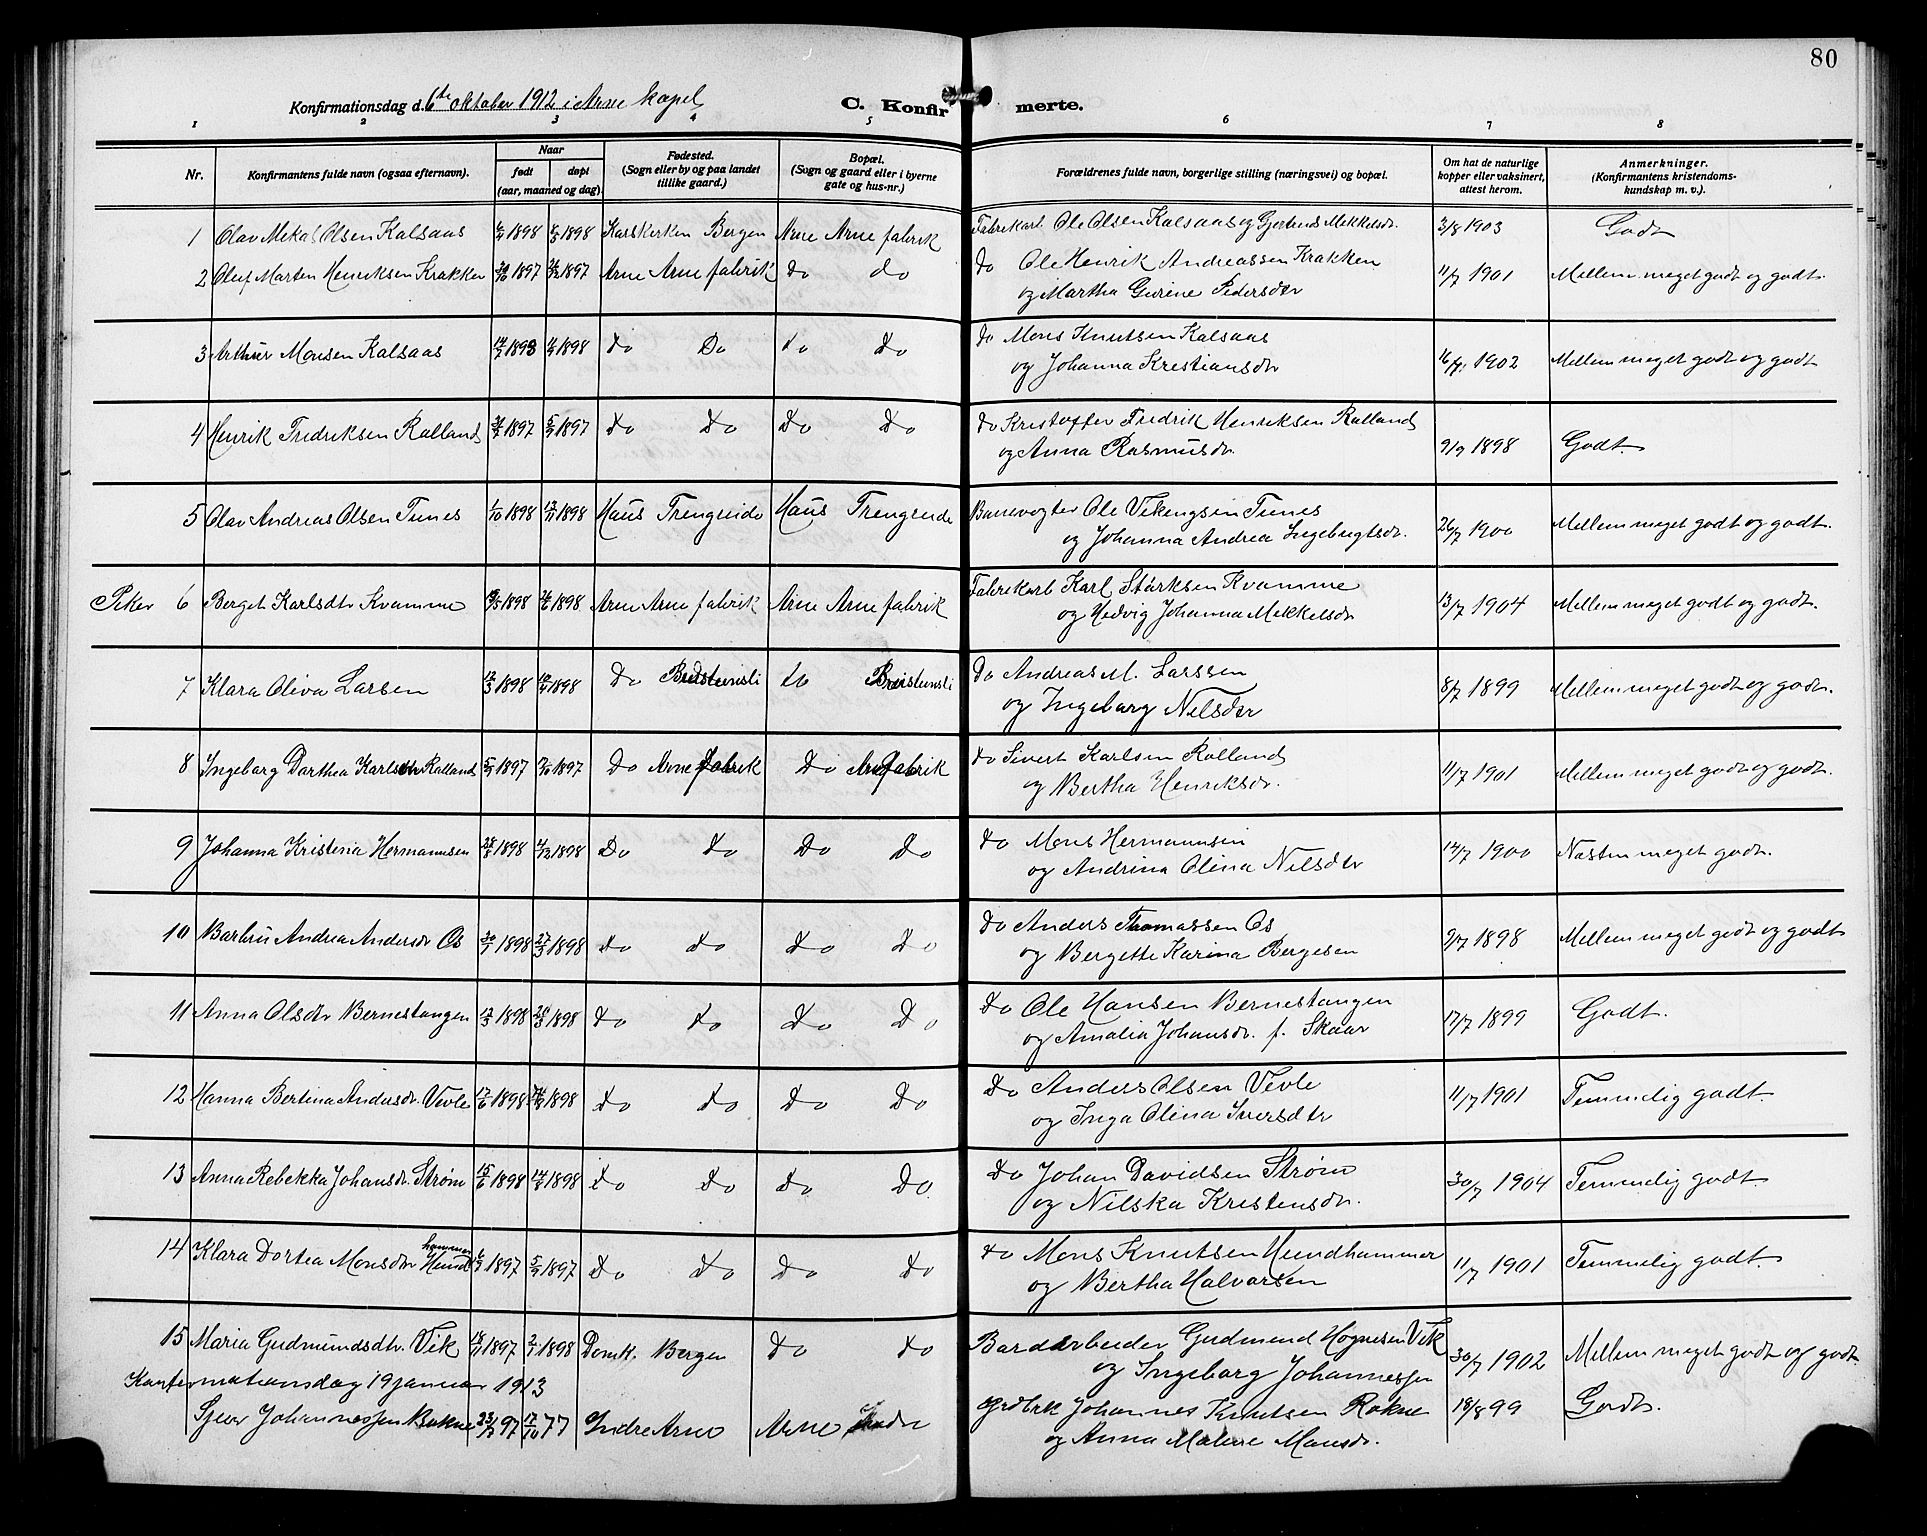 80
Konfirmationsdag d. 6te oktober 1912 i Arne kapel
C. Konfirmerte.
1 2 3 4 5 6 7 8
Nr. Konfirmantens fulde navn (ogsaa efternavn). Naar født døpt (aar, maaned og dag). Fødested. (Sogn eller by og paa landet tillike gaard.) Bopæl. (Sogn og gaard eller i byerne gate og hus-nr.) Forældrenes fulde navn, borgerlige stilling (næringsvei) og bopæl. Om hat de naturlige kopper eller vaksinert, attest herom. Anmerkninger. (Konfirmantens kristendoms-kundskap m. v.).
1 Olav Mekal Olsen Kalsaas 1898 1898 Korskerken Bergen Arne Arne fabrik Fabrikarb. Ole Olsen Kalsaas og Gjertrud Mekkelsdr. 3/8 1903 Godt
2 Oluf Marten Henriksen Krakken 1897 1897 Arne Arne fabrik do do do Ole Henrik Andreassen Krakken
og Martha Gurine Pedersdtr 11/7 1901 Mellem meget godt og godt.
3 Arthur Monsen Kalsaas 1898 1898 do Do do Do do Mons Knutsen Kalsaas
og Johanna Kristiansdr 16/7 1902 Mellem meget godt og godt
4 Henrik Fredriksen Rolland 1897 1897 Do Do Do Do do Kristoffer Fredrik Henriksen Rolland
og Anna Rasmusdr. 9/9 1898 Godt.
5 Olav Andreas Olsen Tunes 1/10 1898 13/11 1898 Haus Trengreide Haus Trengreide Banevogter Ole Vekingsen Tunes
og Johanna Andrea Ingebrigtsdr. 26/7 1900 Mellem meget godt og godt.
Piker 6 Berget Karlsdtr Kvamme 1898 1898 Arne Arne fabrik Arne Arne fabrik Fabrikarb Karl Störksen Kvamme
og Hedvig Johanna Mekkelsdr 13/7 1904 Mellem meget godt og godt.
7 Klara Oliva Larsen 13/3 1898 1898 Do Breistensli do Breistensli Do Andreas M. Larssen
og Ingeborg Nilsdtr 8/7 1899 Mellem meget godt og godt.
8 Ingeborg Dorthea Karlsdtr Rolland 1897 1897 Do Arne fabrik Do Arne fabrik do Sivert Karlsen Rolland
og Bertha Henriksdr. 11/7 1901 Mellem meget godt og godt.
9 Johanna Kristena Hermannsen 28/8 1898 1898 Do Do Do Do do Mons Hermannsen
og Andrina Olina Nilsdtr 12/7 1900 Næsten meget godt.
10 Barbru Andrea Andersdr Os 1898 27/3 1898 do do Do Do do Anders Thomassen Os
og Bergette Karina Bergesen 9/7 1898 Mellem meget godt og godt
11 Anna Olsdtr Bernestangen 1898 1898 do do Do Do do Ole Hansen Bernestangen
og Amalia Johansdr. f. Skaar 17/7 1899 Godt.
12 Hanna Bertina Andersdr. Vevle 1898 1898 do do Do Do do Anders Olsen Vevle
og Inga Olina Iversdtr 11/7 1901 Temmelig godt.
13 Anna Rebekka Johansdr. Strøm 15/6 1898 14/8 1898 do do do Do do Johan Davidsen Strøm
og Nilska Kristensdr. 30/7 1904 Temmelig godt
14 Klara Dortea Monsdtr Hundhammer 1897 5/9 1897 Do Do Do Do do Mons Knutsen Hundhammer
og Bertha Halvorsen 11/7 1901 Temmelig godt.
15 Maria Gudmundsdtr. Vik 18/11 1897 2/1 1898 Domk. Bergen Do do Gudmund Hognesen Vik
og Ingeborg Johannessen 30/7 1902 Mellem meget godt og godt.
Konfermationsdag 19 januar 1913
Johannessen 97 Indre Arne Arne Grdbrk Johannes Knutsen Rokne 18/8 99 Godt.
og Anna Malene Monsdr.